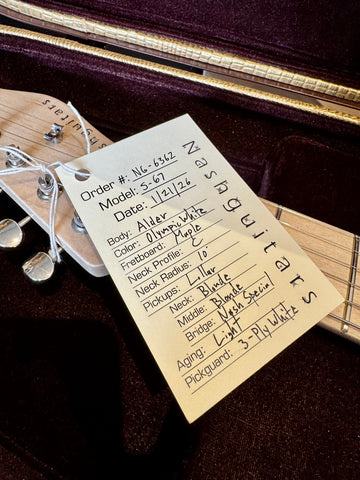 Nashguitars
Order #: NG-6362
Model: S-67
Date: 1/21/26
Body: Alder
Color: Olympic White
Fretboard: Maple
Neck Profile: C
Neck Radius: 10
Pickups: Lollar
Neck: Blonde
Middle: Blonde
Bridge: Nash Special
Aging: Light
Pickguard: 3-Ply White
shguitars